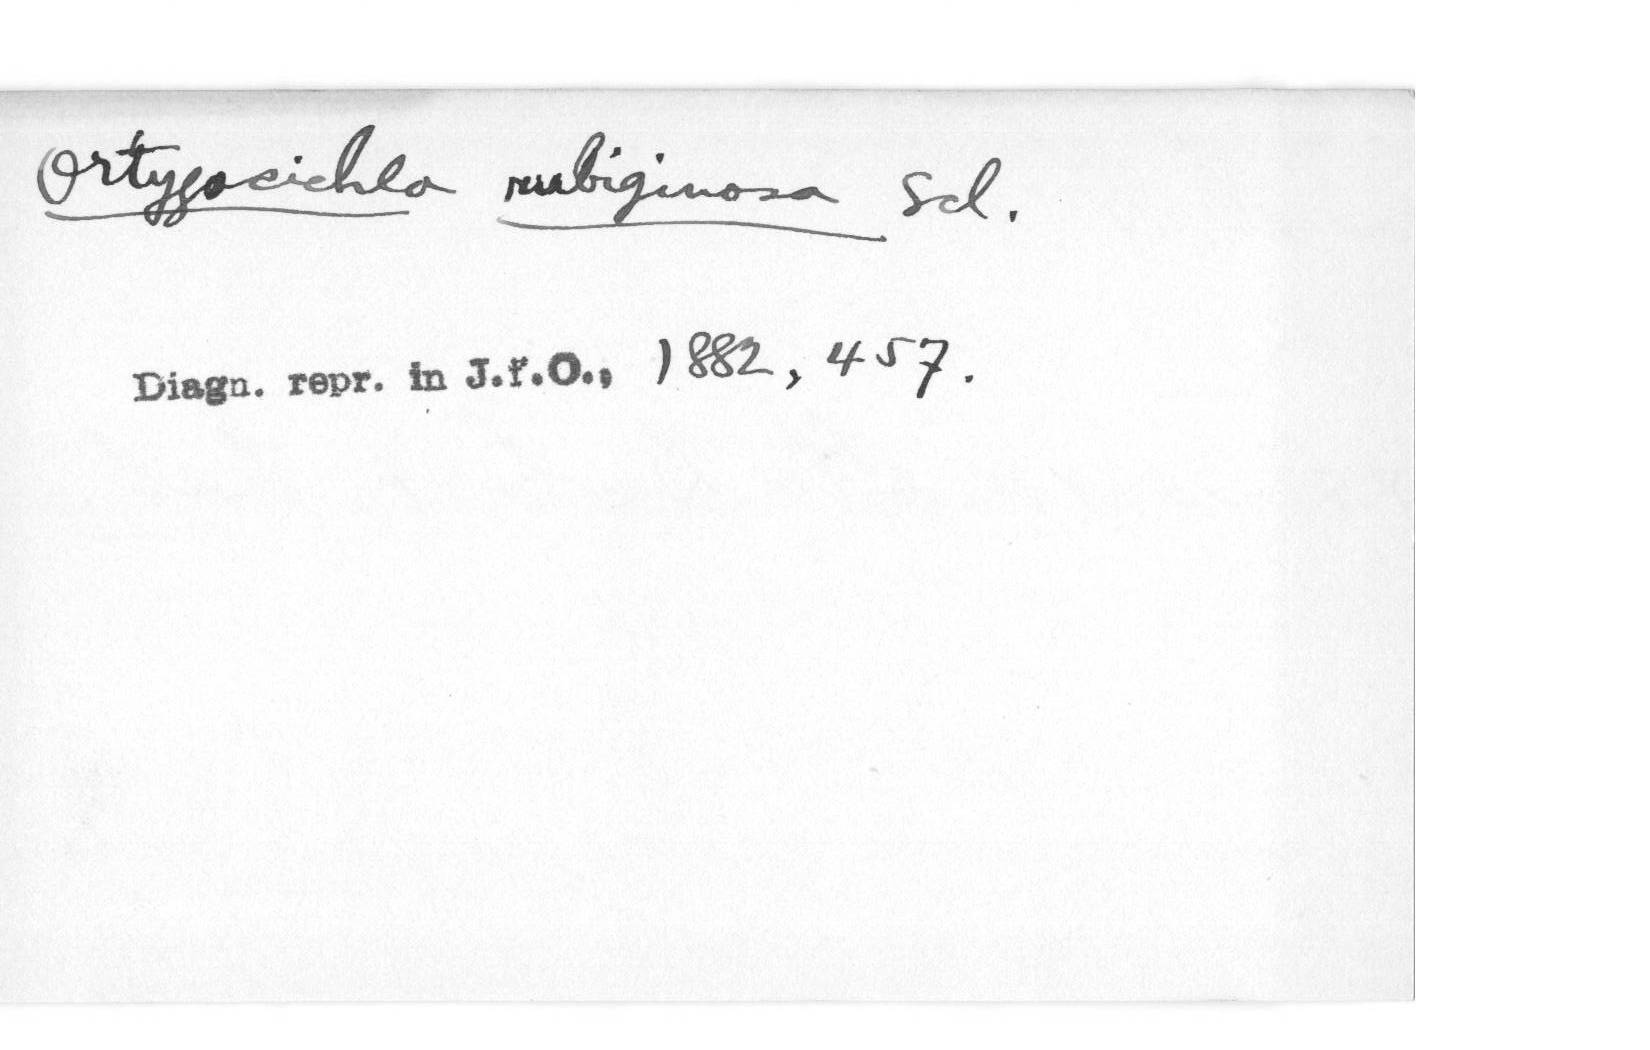 Ortygocichla rubiginosa Scl.
Diagn. repr. in J.f.O., 1882, 457.